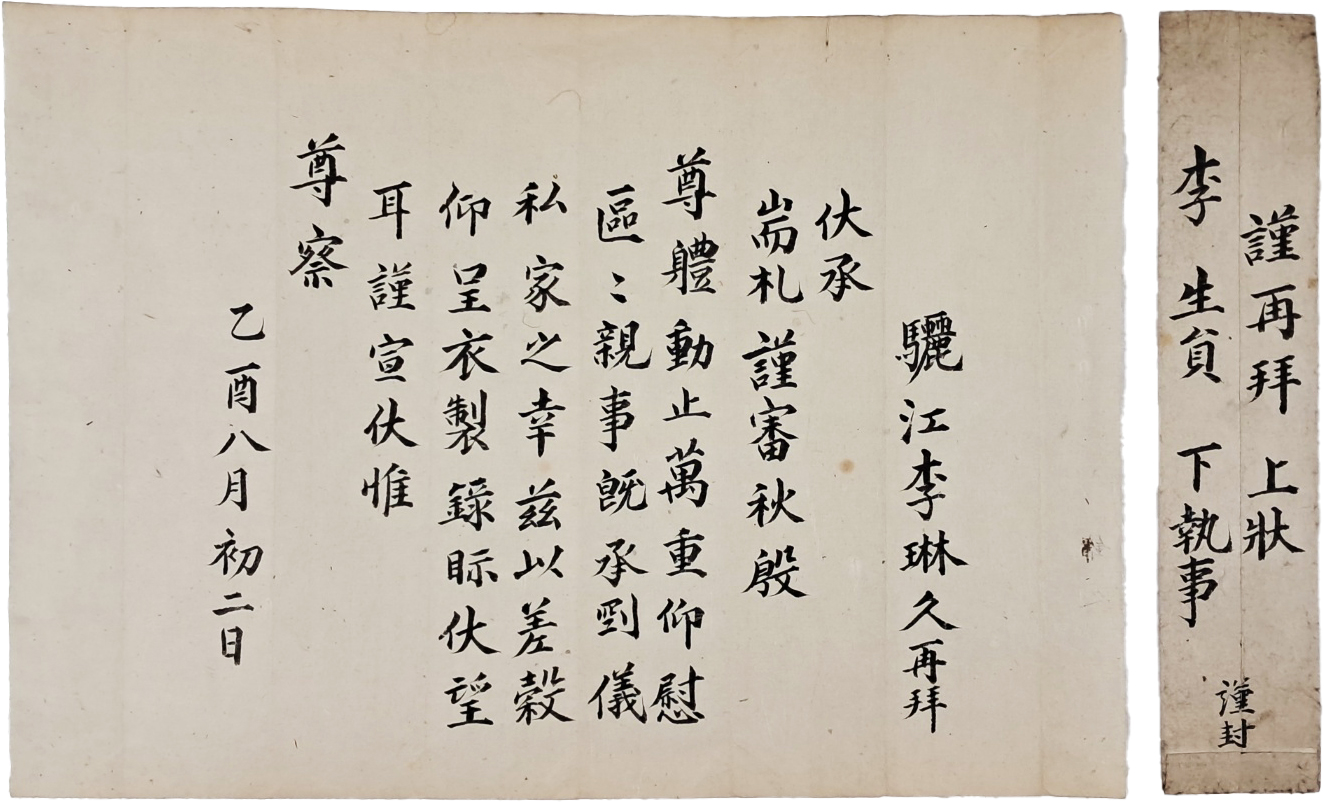 謹再拜 上狀
李 生員 下執事
謹封
驪江李琳久再拜
伏承
耑札謹審秋殷
尊體動止萬重仰慰
區〻親事旣承剛儀
私家之幸玆以差穀
仰呈衣製錄眎伏望
耳謹宣伏惟
尊察
乙酉八月初二日